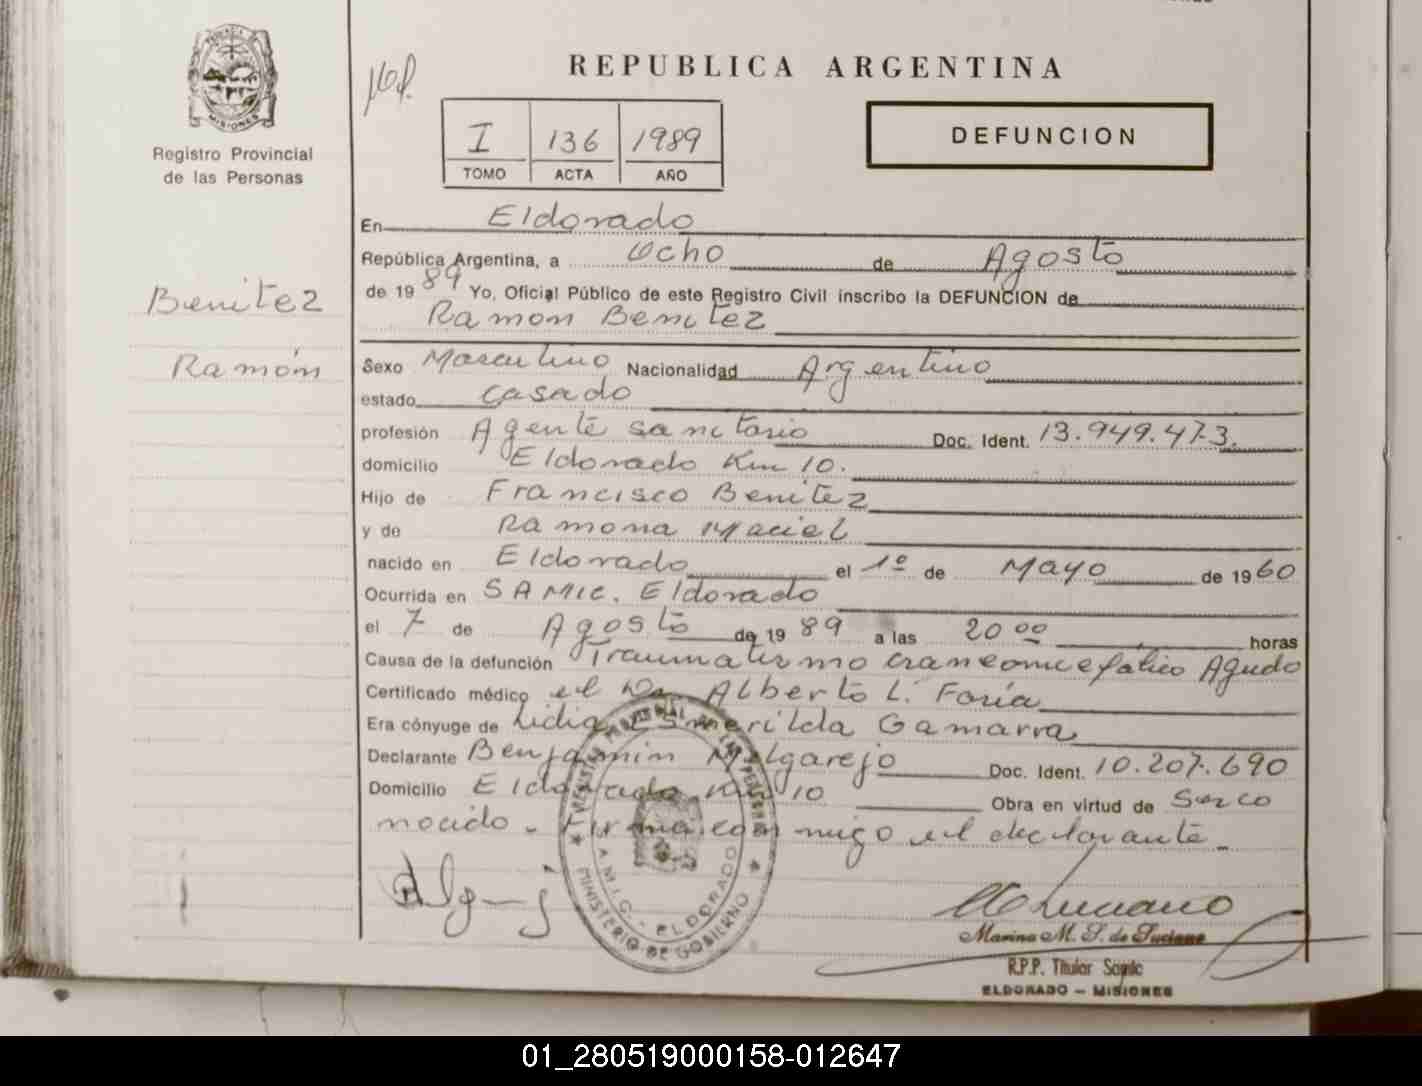 PROVINCIA DE
MISIONES
Registro Provincial
de las Personas
REPUBLICA ARGENTINA
I 136 1989
TOMO ACTA AÑO
DEFUNCION
En Eldorado
República Argentina, a Ocho de Agosto
de 1989 Yo, Oficial Público de este Registro Civil inscribo la DEFUNCION de
Benitez
Ramon Benitez
Ramón
Sexo Masculino Nacionalidad Argentino
estado casado
profesión Agente sanitario Doc. Ident. 13.949.473.
domicilio Eldorado Km 10.
Hijo de Francisco Benitez
y de Ramona Maciel
nacido en Eldorado el 1º de Mayo de 1960
Ocurrida en SAMIC. Eldorado
el 7 de Agosto de 1989 a las 20 00 horas
Causa de la defunción Traumatismo craneoncefalico Agudo
Certificado médico el Dr. Alberto L. Faría
Era cónyuge de Lidia Esmerilda Gamarra
Declarante Benjamin Melgarejo Doc. Ident. 10.207.690
Domicilio Eldorado Km 10 Obra en virtud de Ser co
nocido. Firma con migo el declarante
MINISTERIO DE GOBIERNO
ELDORADO
Marina M. S. de Luciano
R.P.P. Titular Samic
ELDORADO - MISIONES
01_280519000158-012647